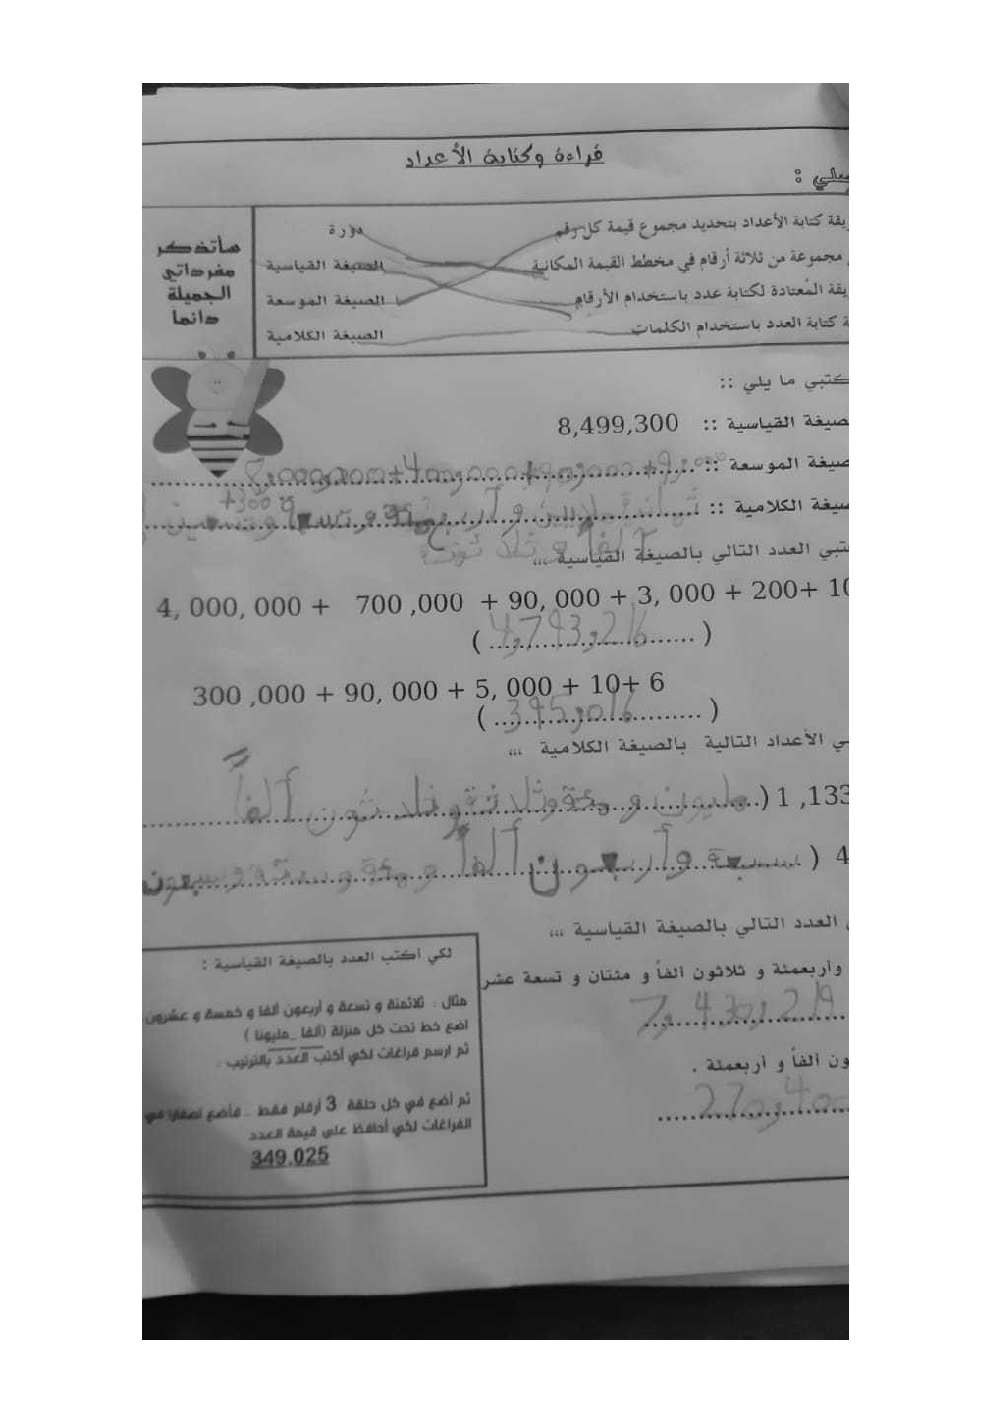 قراءة وكتابة الأعداد
:
يقة كتابة الأعداد بتحديد مجموع قيمة كل رقم
دورة
مجموعة من ثلاثة أرقام في مخطط القيمة المكانية
الصيغة القياسية
يقة المُعتادة لكتابة عدد باستخدام الأرقام
الصيغة الموسعة
ة كتابة العدد باستخدام الكلمات
الصيغة الكلامية
سأتذكر
مفرداتي
الجميلة
دائماً
كتبي ما يلي ::
صيغة القياسية :: 8,499,300
صيغة الموسعة ::
+300
صيغة الكلامية ::
تبي العدد التالي بالصيغة القياسية ،،،
4, 000, 000 + 700 ,000 + 90, 000 + 3, 000 + 200+ 10
( 4,793,216 )
300 ,000 + 90, 000 + 5, 000 + 10+ 6
( 395,016 )
ي الأعداد التالية بالصيغة الكلامية ،،،
1 ,133 ( مليون و مئة وثلاثة وثلاثون ألفاً
4 ( سبعة وأربعون ألفاً و مئة وستة وسبعون
العدد التالي بالصيغة القياسية ،،،
وأربعمئة و ثلاثون الفاً و مئتان و تسعة عشر
7,430,219
ون ألفاً و أربعمئة .
270,400
لكي اكتب العدد بالصيغة القياسية :
مثال : ثلاثمئة و تسعة و أربعون ألفا و خمسة و عشرون
اضع خط تحت كل منزلة (ألفا _ مليونا )
ثم ارسم فراغات لكي أكتب العدد بالترتيب .
ثم أضع في كل حلقة 3 أرقام فقط .. فأضع أصفارا في
الفراغات لكي أحافظ على قيمة العدد
349,025